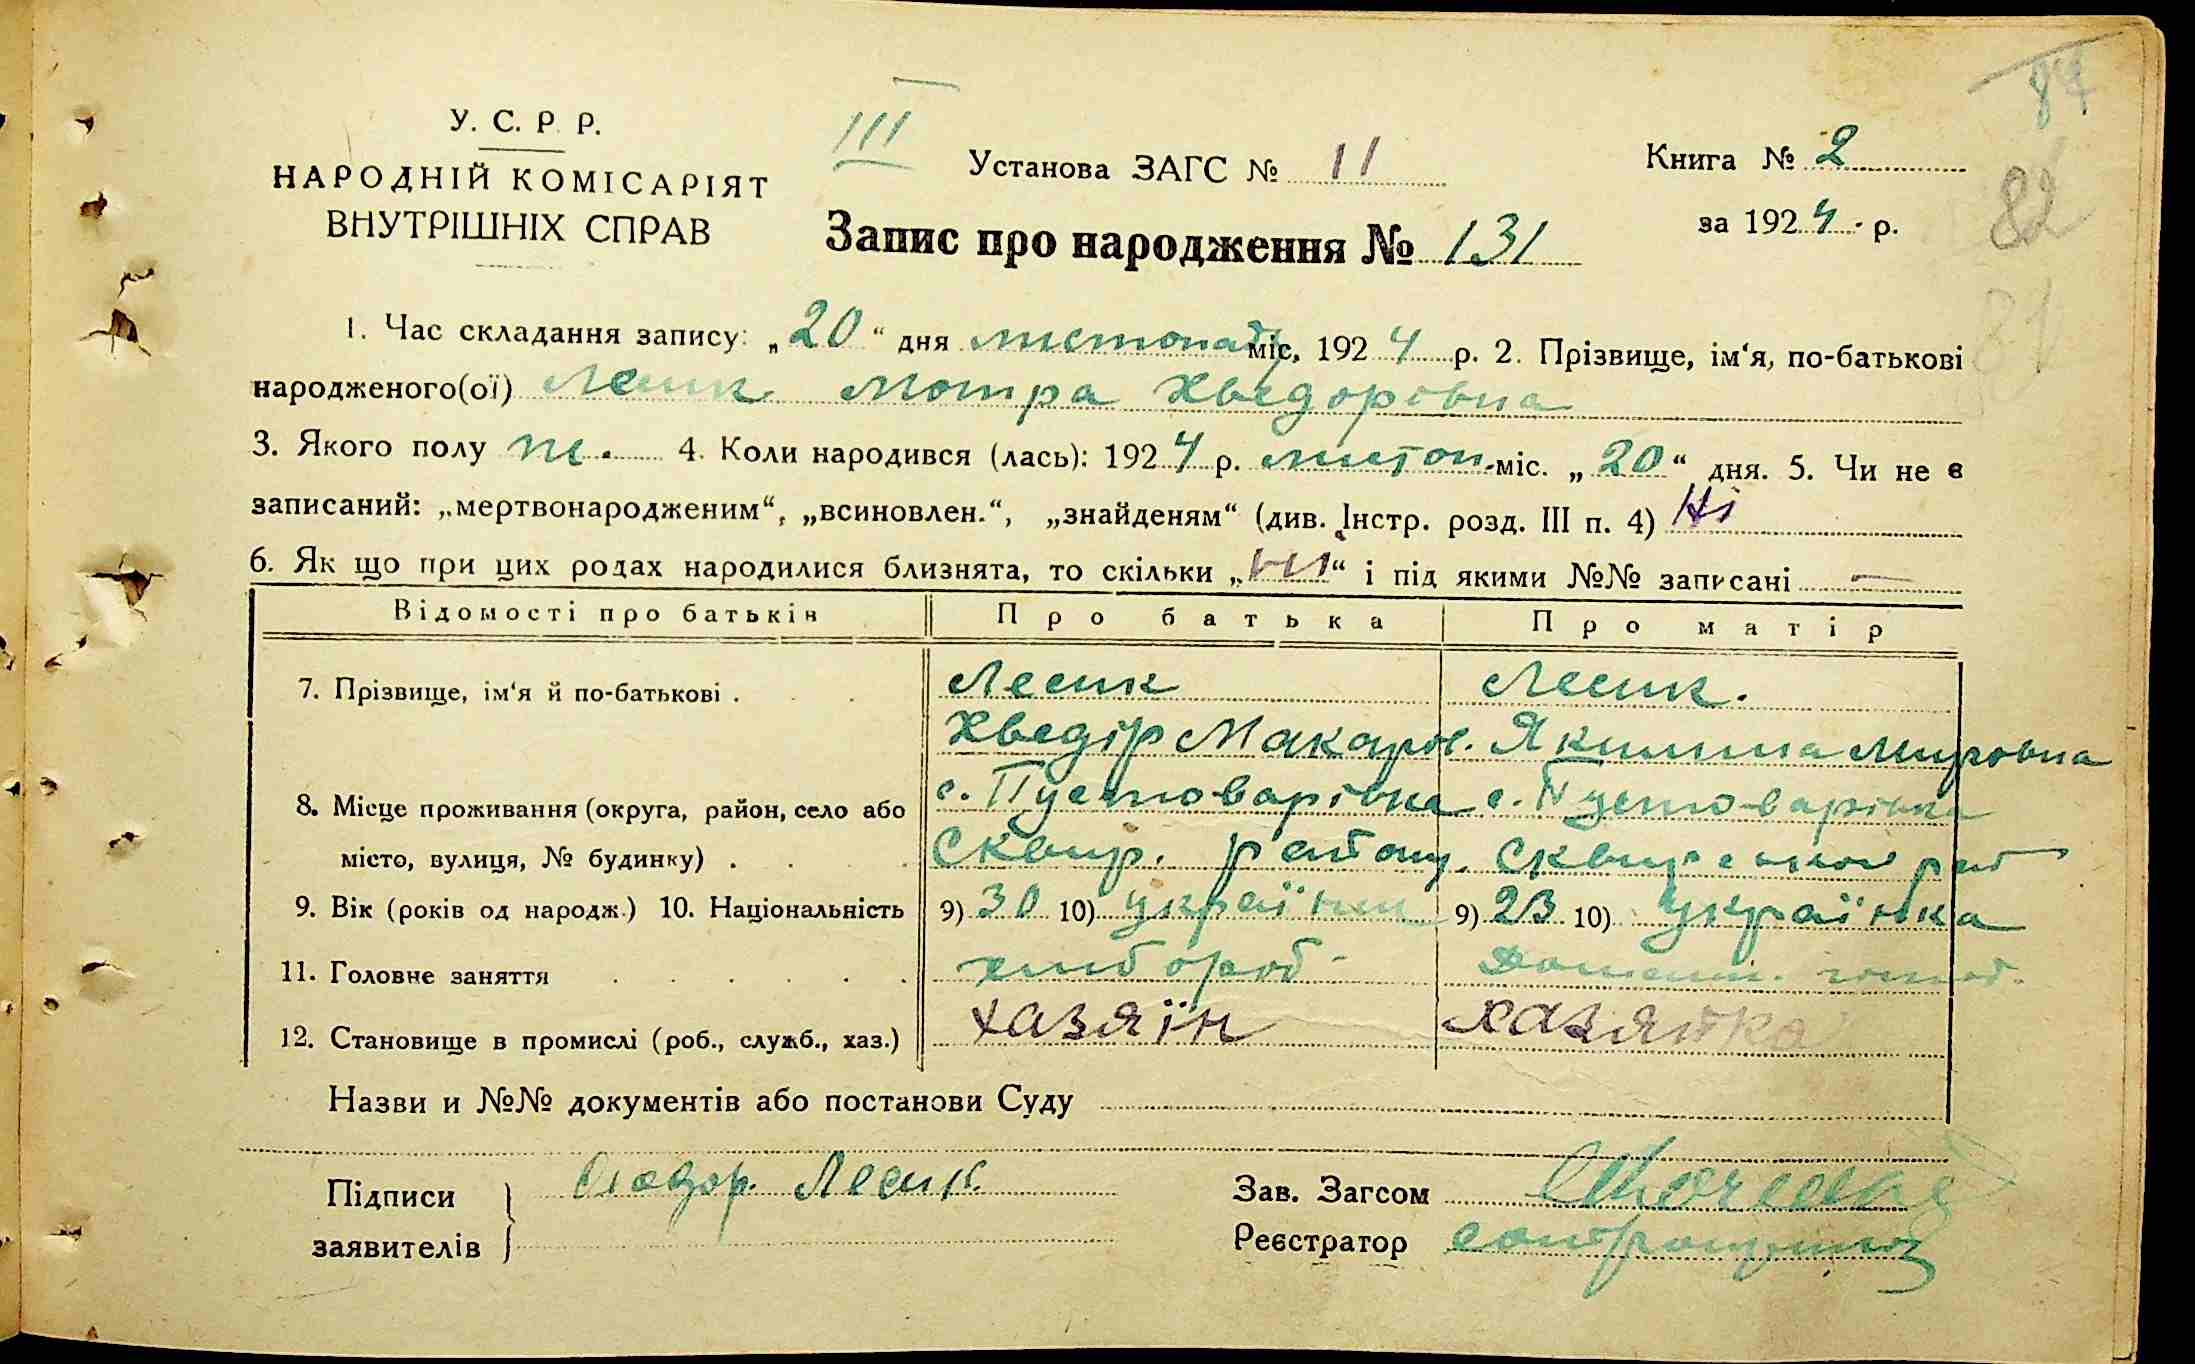 87
У. С. Р. Р.
НАРОДНІЙ КОМІСАРІЯТ
ВНУТРІШНІХ СПРАВ
III
Установа ЗАГС № 11
Книга № 2
82
за 1924 р.
Запис про народження № 131
81
1. Час складання запису: „20“ дня листопад міс, 1924 р. 2. Прізвище, ім‘я, по-батькові
народженого(ої) Лесик Мотра Хведорівна
3. Якого полу ж. 4. Коли народився (лась): 1924 р. листоп. міс. „20“ дня. 5. Чи не є
записаний: „мертвонародженим“, „всиновлен.“, „знайденям“ (див. Інстр. розд. III п. 4) Ні
6. Як що при цих родах народилися близнята, то скільки „ “ і під якими №№ записані —
Відомості про батьків Про батька Про матір
7. Прізвище, ім‘я й по-батькові . Лесик Лесик.
Хведір Макаров. Якилина
8. Місце проживання (округа, район, село або с. Пустоварівка с. Пустоварівка
місто, вулиця, № будинку) . Сквир. району. Сквирський
9. Вік (років од народж.) 10. Національність 9) 30 10) українец 9) 23 10) українка
11. Головне заняття хлібороб Домашн. господ.
12. Становище в промислі (роб., служб., хаз.) хазяїн хазяйка
Назви и №№ документів або постанови Суду
Підписи Лесик
Зав. Загсом
заявителів
Реєстратор